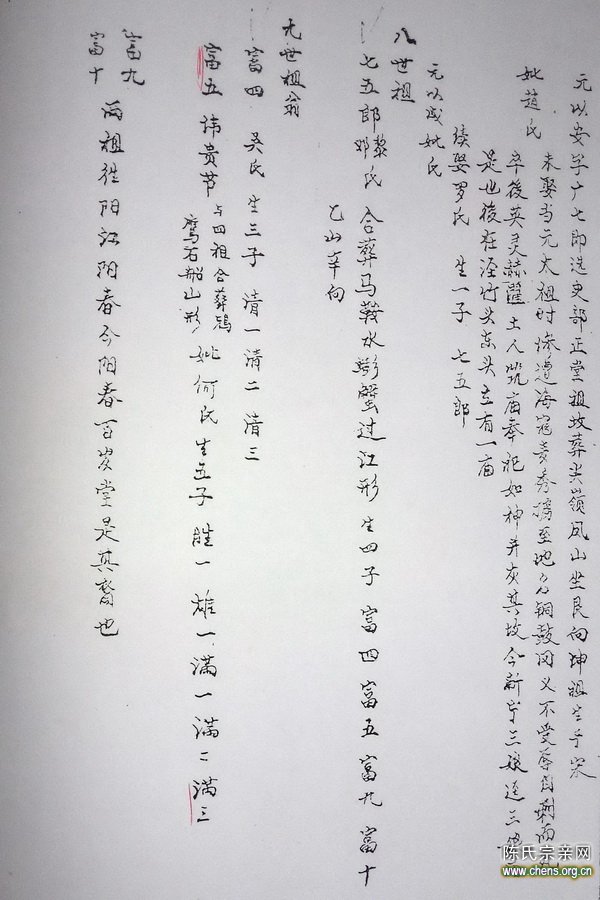 元以安字广七郎选吏部正堂祖坟葬尖嶺凤山坐艮向坤祖生于宋
妣赵氏
未娶当元太祖时惨遭海寇袁秀掳至地名铜鼓冈义不受辱自刎而
卒後英灵赫濯土人筑庙奉祀如神并灰其坟今新
是也後在泾竹头东头立有一庙
续娶罗氏 生一子 七五郎
元以成妣氏
八世祖
七五郎黎邓氏 合葬马鞍水螃蟹过江形 生四子 富四 富五 富九 富十
乙山辛向
九世祖翁
富四 吴氏 生三子 清一 清二 清三
富五 讳贵节 与四祖合葬鸡鹰石船山形 妣何氏 生五子 胜一 雄一 满一 满二 满三
富九
富十
两祖往阳江阳春今阳春百岁堂是其裔也
陈氏宗亲网
www.chens.org.cn